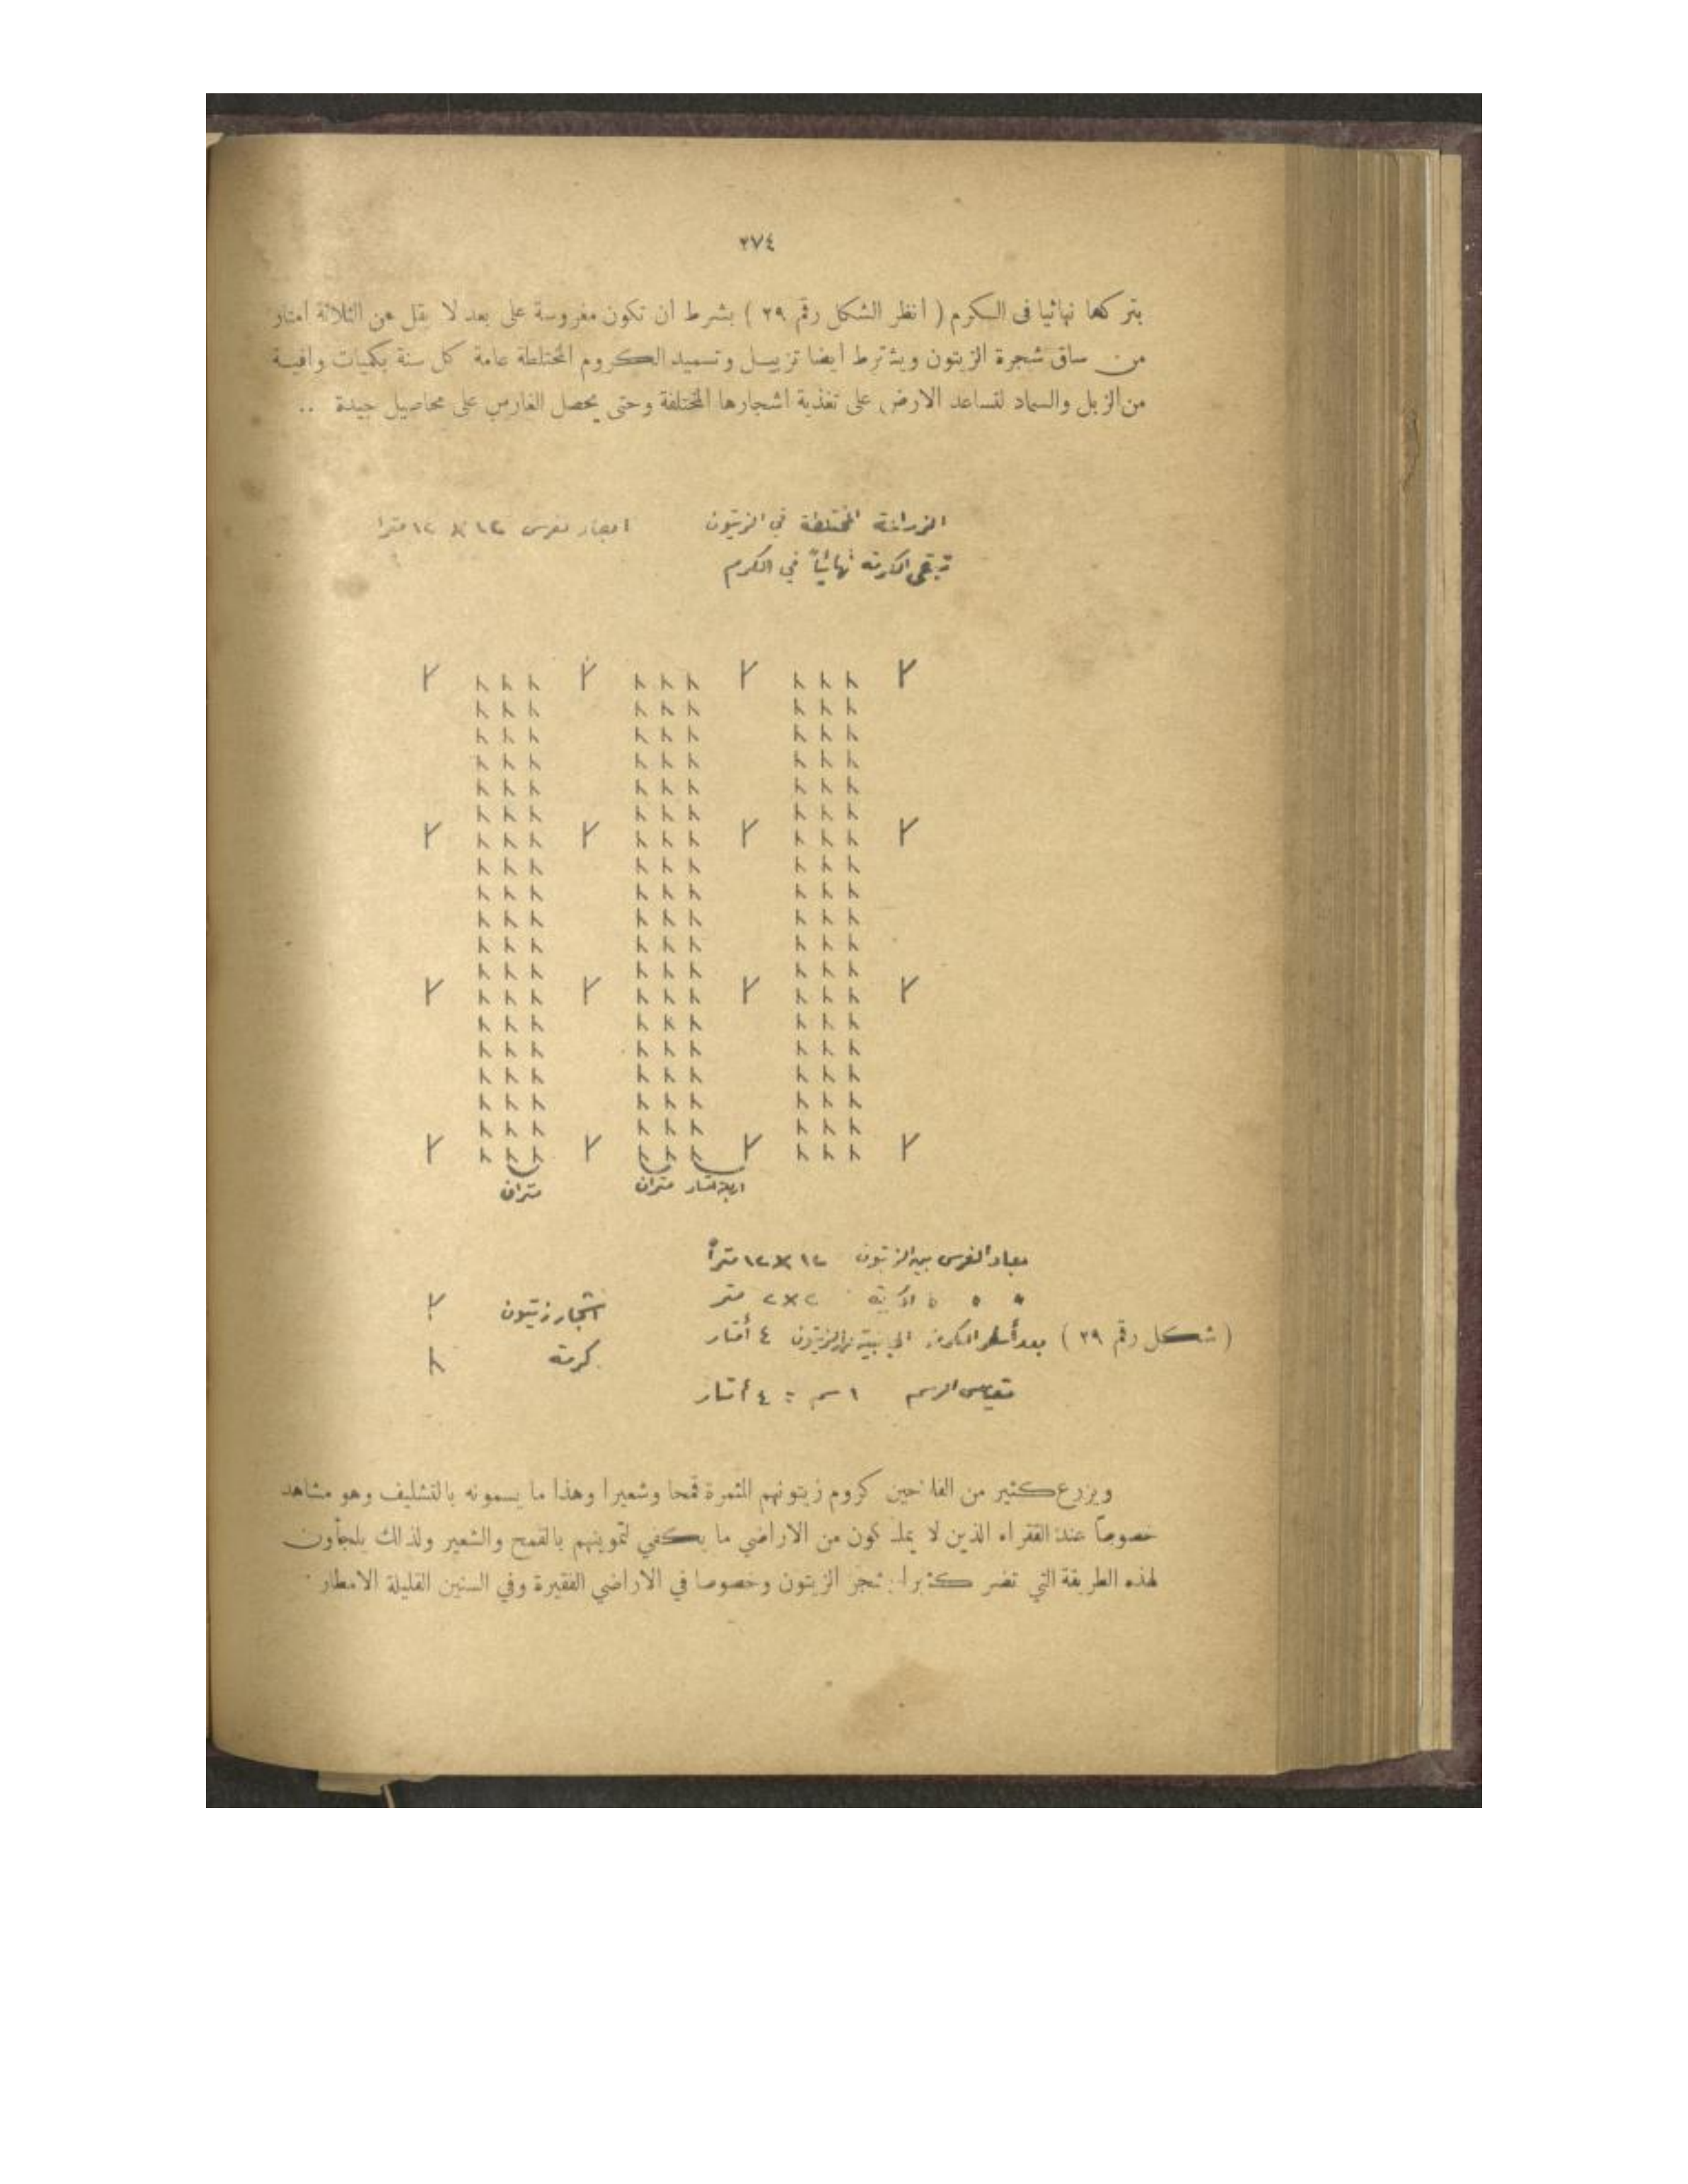 ٢٧٤
بتركها نهائيا فى الكرم ( انظر الشكل رقم ٢٩ ) بشرط ان تكون مغروسة على بعد لا يقل عن الثلاثة امتار
من ساق شجرة الزيتون ويشترط ايضا تزييل وتسميد الكروم المختلطة عامة كل سنة بكميات وافية
من الزبل والسماد لتساعد الارض على تغذية اشجارها المختلفة وحتى يحصل الغارس على محاصيل جيدة ..
الزراعة المختلطة في الزيتون ابعاد غرس ١٢ × ١٢ مترا
تبقى الكرمة نهائياً في الكرم
متران
متران
اربعة امتار
ابعاد الغرس بين الزيتون ١٢×١٢ متراً
٢×٢ متر
( شكل رقم ٢٩ ) بعد أسطر الكرمة الجانبية عن الزيتون ٤ أمتار
مقياس الرسم ١ سم = ٤ أمتار
اشجار زيتون
كرمة
ويزرع كثير من الفلاحين كروم زيتونهم المثمرة قمحا وشعيرا وهذا ما يسمونه بالتشليف وهو مشاهد
خصوصاً عند الفقراء الذين لا يملكون من الاراضي ما يكفي لتموينهم بالقمح والشعير ولذلك يلجأون
لهذه الطريقة التي تضر كثيرا بشجر الزيتون وخصوصا في الاراضي الفقيرة وفي السنين القليلة الامطار ·